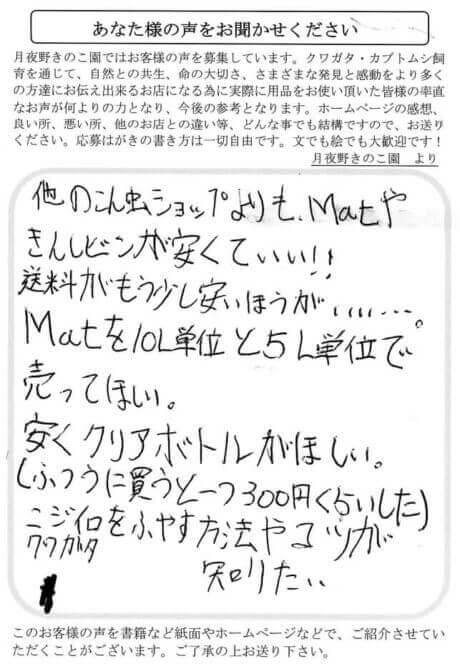 あなた様の声をお聞かせください
月夜野きのこ園ではお客様の声を募集しています。クワガタ・カブトムシ飼
育を通じて、自然との共生、命の大切さ、さまざまな発見と感動をより多く
の方達にお伝え出来るお店になる為に実際に用品をお使い頂いた皆様の率直
なお声が何よりの力となり、今後の参考となります。ホームページの感想、
良い所、悪い所、他のお店との違い等、どんな事でも結構ですので、お送り
ください。応募はがきの書き方は一切自由です。文でも絵でも大歓迎です！
月夜野きのこ園　より
他のこん虫ショップよりも、Matや
きんしビンが安くていい!!
送料がもう少し安いほうが、、、、、、。
Matを10L単位と5L単位で
売ってほしい。
安くクリアボトルがほしい。
(ふつうに買うと一つ300円くらいした)
ニジイロ
クワガタをふやす方法やコツが
知りたい
このお客様の声を書籍など紙面やホームページなどで、ご紹介させてい
ただくことがございます。ご了承の上お送り下さい。